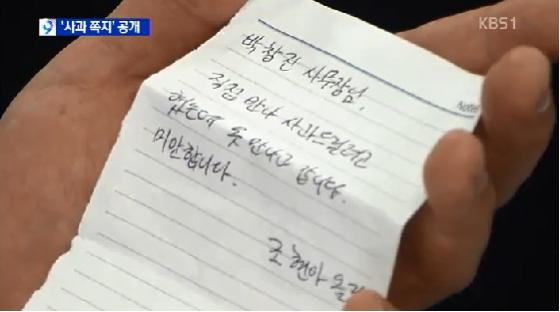 '사과 쪽지' 공개
KBS1
Note
박창진 사무장님,
직접 만나 사과드릴려고
했는데 못 만나고 갑니다.
미안합니다.
조현아 올림